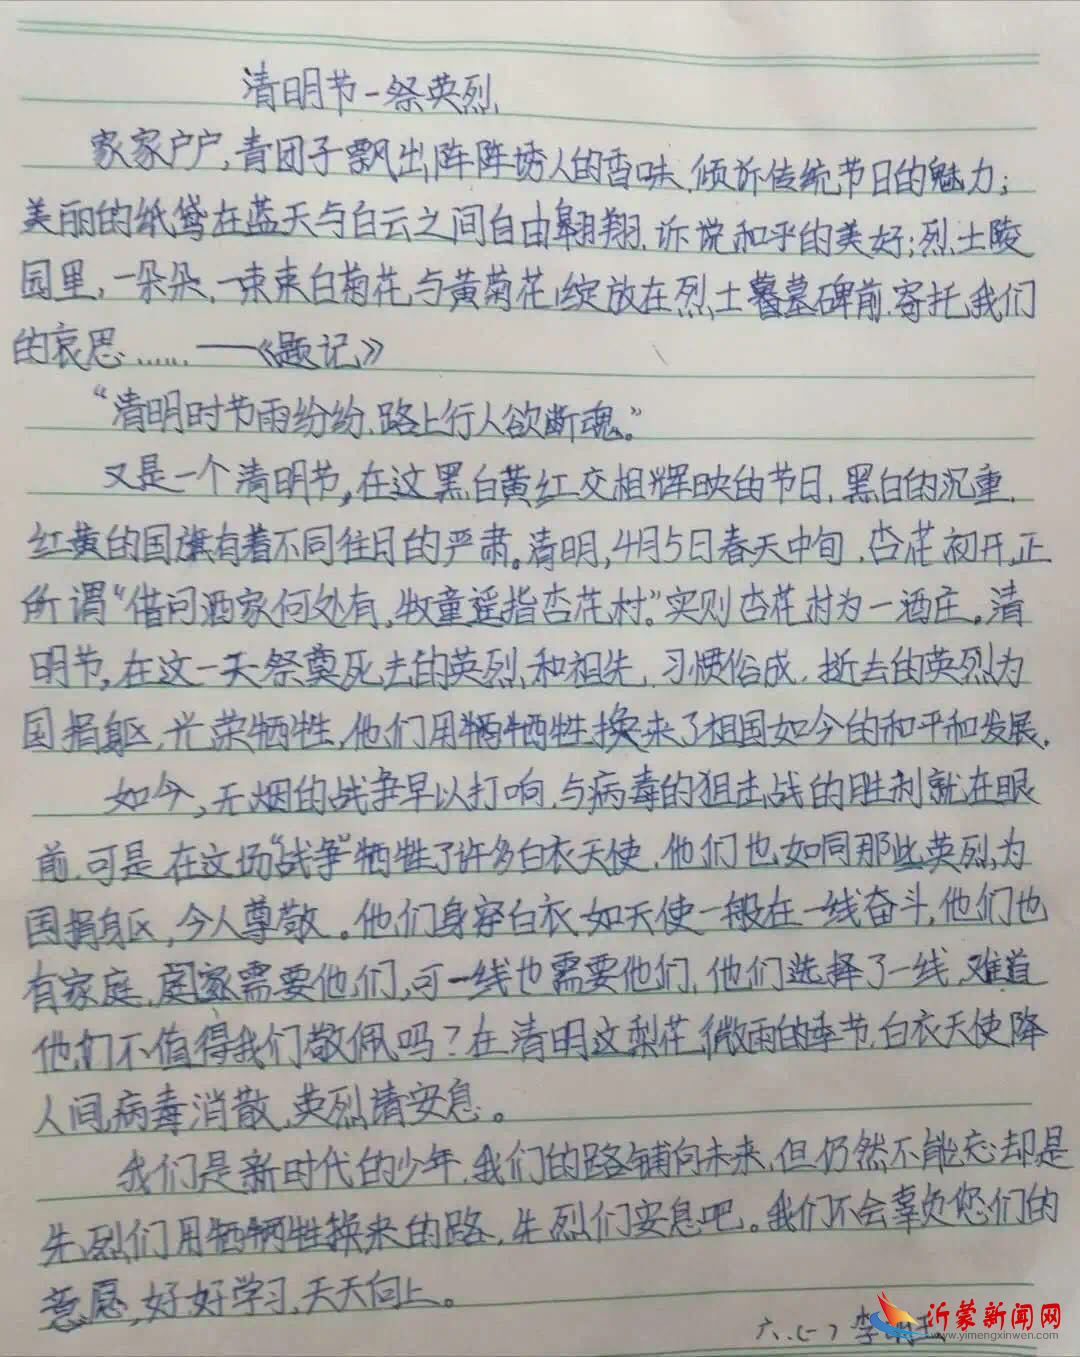 清明节-祭英烈
家家户户,青团子飘出阵阵诱人的香味,倾诉传统节日的魅力;
美丽的纸鸢在蓝天与白云之间自由翱翔,诉说和平的美好;烈士陵
园里,一朵朵,一束束白菊花与黄菊花绽放在烈士墓碑前,寄托我们
的哀思……——《题记》
“清明时节雨纷纷,路上行人欲断魂。”
又是一个清明节,在这黑白黄红交相辉映的节日,黑白的沉重,
红黄的国旗有着不同往日的严肃。清明,4月5日春天中旬,杏花初开,正
所谓“借问酒家何处有,牧童遥指杏花村。”实则杏花村为一酒庄。清
明节,在这一天祭奠死去的英烈和祖先,习惯俗成,逝去的英烈为
国捐躯,光荣牺牲,他们用牺牲换来了祖国如今的和平和发展.
如今,无烟的战争早以打响,与病毒的狙击战的胜利就在眼
前,可是在这场“战争”牺牲了许多白衣天使,他们也如同那些英烈,为
国捐躯,令人尊敬。他们身穿白衣如天使一般在一线奋斗,他们也
有家庭,家需要他们,可一线也需要他们,他们选择了一线,难道
他们不值得我们敬佩吗?在清明这梨花微雨的季节,白衣天使降
人间,病毒消散,英烈请安息。
我们是新时代的少年,我们的路铺向未来,但仍然不能忘却是
先烈们用牺牲换来的路,先烈们安息吧。我们不会辜负您们的
意愿,好好学习,天天向上。
六.(一) 李
沂蒙新闻网
www.yimengxinwen.com